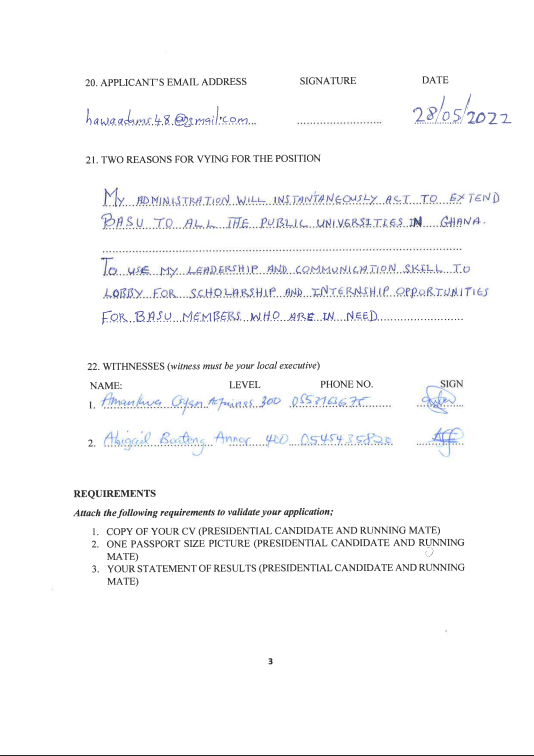 20. APPLICANT'S EMAIL ADDRESS SIGNATURE DATE
hawaadums48@gmail.com 28/05/2022
21. TWO REASONS FOR VYING FOR THE POSITION
MY ADMINISTRATION WILL INSTANTANEOUSLY ACT TO EXTEND
BASU TO ALL THE PUBLIC UNIVERSITIES IN GHANA.
TO USE MY LEADERSHIP AND COMMUNICATION SKILL TO
LOBBY FOR SCHOLARSHIP AND INTERNSHIP OPPORTUNITIES
FOR BASU MEMBERS WHO ARE IN NEED
22. WITHNESSES (witness must be your local executive)
NAME: LEVEL PHONE NO. SIGN
1. Amankwa 300
2. Abigail Annor 400 0545435820
REQUIREMENTS
Attach the following requirements to validate your application;
1. COPY OF YOUR CV (PRESIDENTIAL CANDIDATE AND RUNNING MATE)
2. ONE PASSPORT SIZE PICTURE (PRESIDENTIAL CANDIDATE AND RUNNING
MATE)
3. YOUR STATEMENT OF RESULTS (PRESIDENTIAL CANDIDATE AND RUNNING
MATE)
3